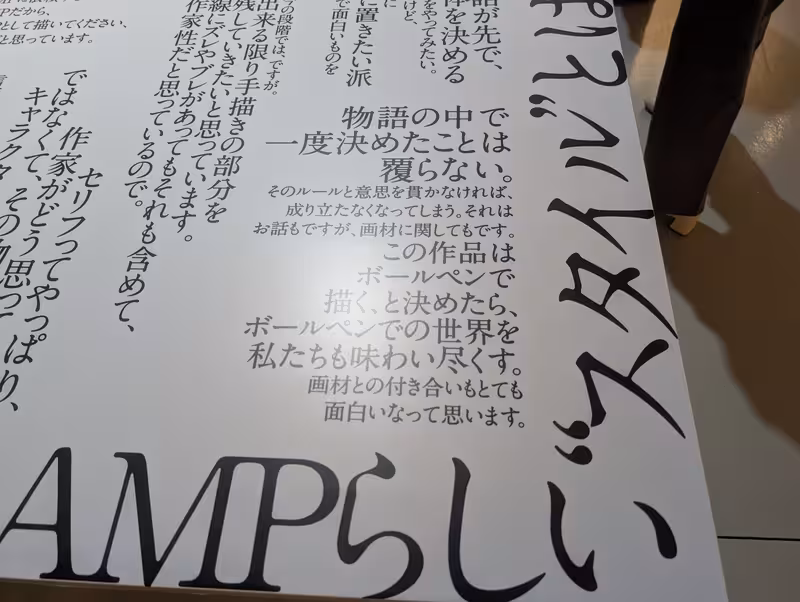 話が先で、
を決める
をやってみたい。
けど、
に置きたい派
で面白いものを
の段階では、ですが。
出来る限り手描きの部分を
残していきたいと思っています。
線にズレやブレがあってもそれも含めて、
作家性だと思っているので。
Pだから、
として描いてください、
と思っています。
セリフってやっぱり、
作家がどう思って
ではなくて、その物
キャラクタ
物語の中で
一度決めたことは
覆らない。
そのルールと意思を貫かなければ、
成り立たなくなってしまう。それは
お話もですが、画材に関してもです。
この作品は
ボールペンで
描く、と決めたら、
ボールペンでの世界を
私たちも味わい尽くす。
画材との付き合いもとても
面白いなって思います。
AMPらしい"スタイル"